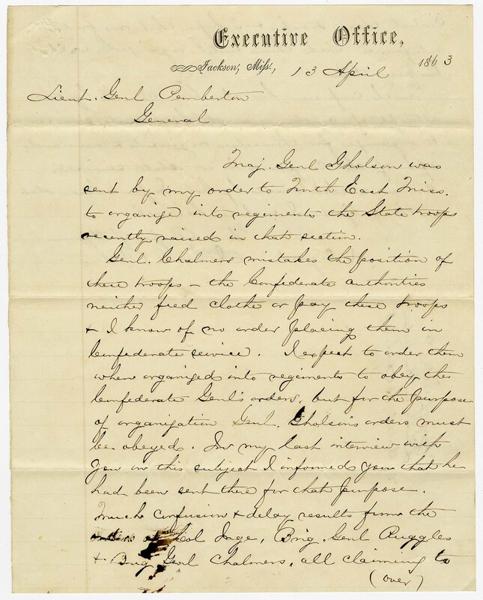 Executive Office,
Jackson, Miss, 13 April 1863
Lieut. Genl Pemberton
General
Maj. Genl Gholson was
sent by my order to North East Miss.
to organize into regiments the State troops
recently raised in that section.
Genl. Chalmers mistakes the position of
these troops - the Confederate authorities
neither feed clothe or pay these troops
& I know of no order placing them in
Confederate service. I expect to order them
when organized into regiments to obey the
Confederate Genl's orders, but for the purpose
of organization Genl. Gholson's orders must
be obeyed. In my last interview with
you on this subject I informed you that he
had been sent there for that purpose.
Much confusion & delay results from the
orders of Col Inge, Brig. Genl Ruggles
& Brig Genl Chalmers, all claiming to
(over)